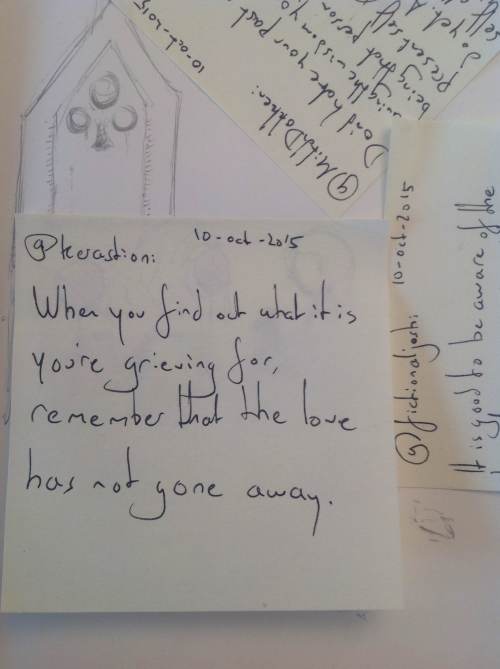 @kerastion:
10-oct-2015
When you find out what it is
you're grieving for,
remember that the love
has not gone away.
@fictionaljosh:
10-oct-2015
It is good to be aware of the
10-oct-2015
Don't hate your past
using the wisdom yo
being that person
present self
so yet. A
self